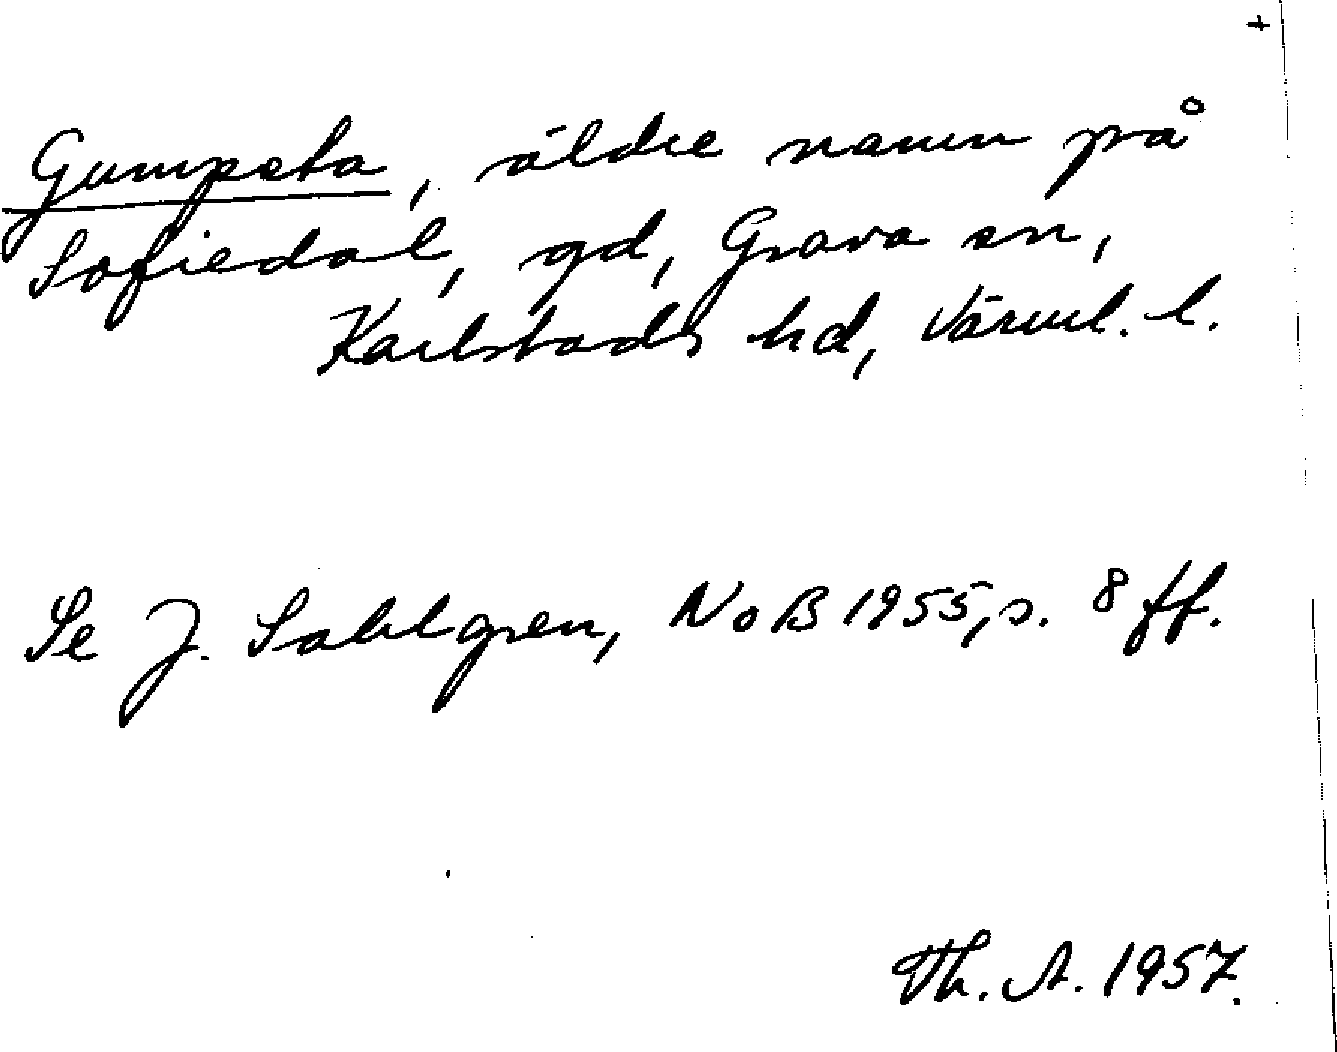 +
Gumpeta, äldre namn på
Sofiedal, gd, Grava sn,
Karlstads hd, Värml. l.
Se J. Sahlgren, NoB 1955, s. 8 ff.
Th. A. 1957.